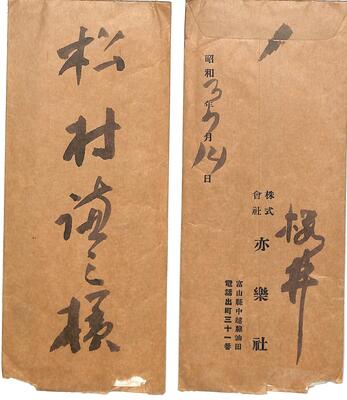 松村謙三様
昭和3年5月14日
株式会社 亦樂社
富山縣中越線油田
電話出町三十一番
桜井